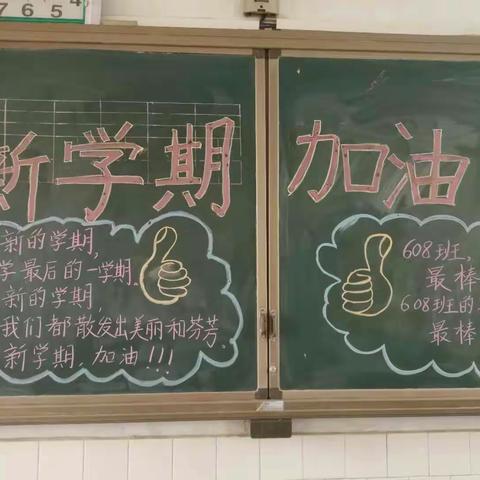 765
新学期 加油
新的学期,
学最后的一学期.
新的学期,
我们都散发出美丽和芬芳.
新学期,加油!!!
608班,
最棒
608班的
最棒